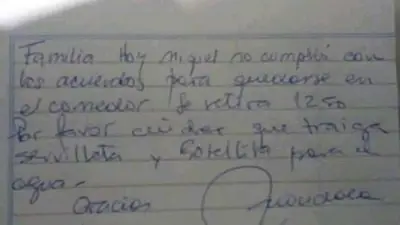 Familia Hoy Miguel no cumplió con
los acuerdos para quedarse en
el comedor Se retira 1250
Por favor cuidar que traiga
servilleta y botellita para el
agua.
Gracias